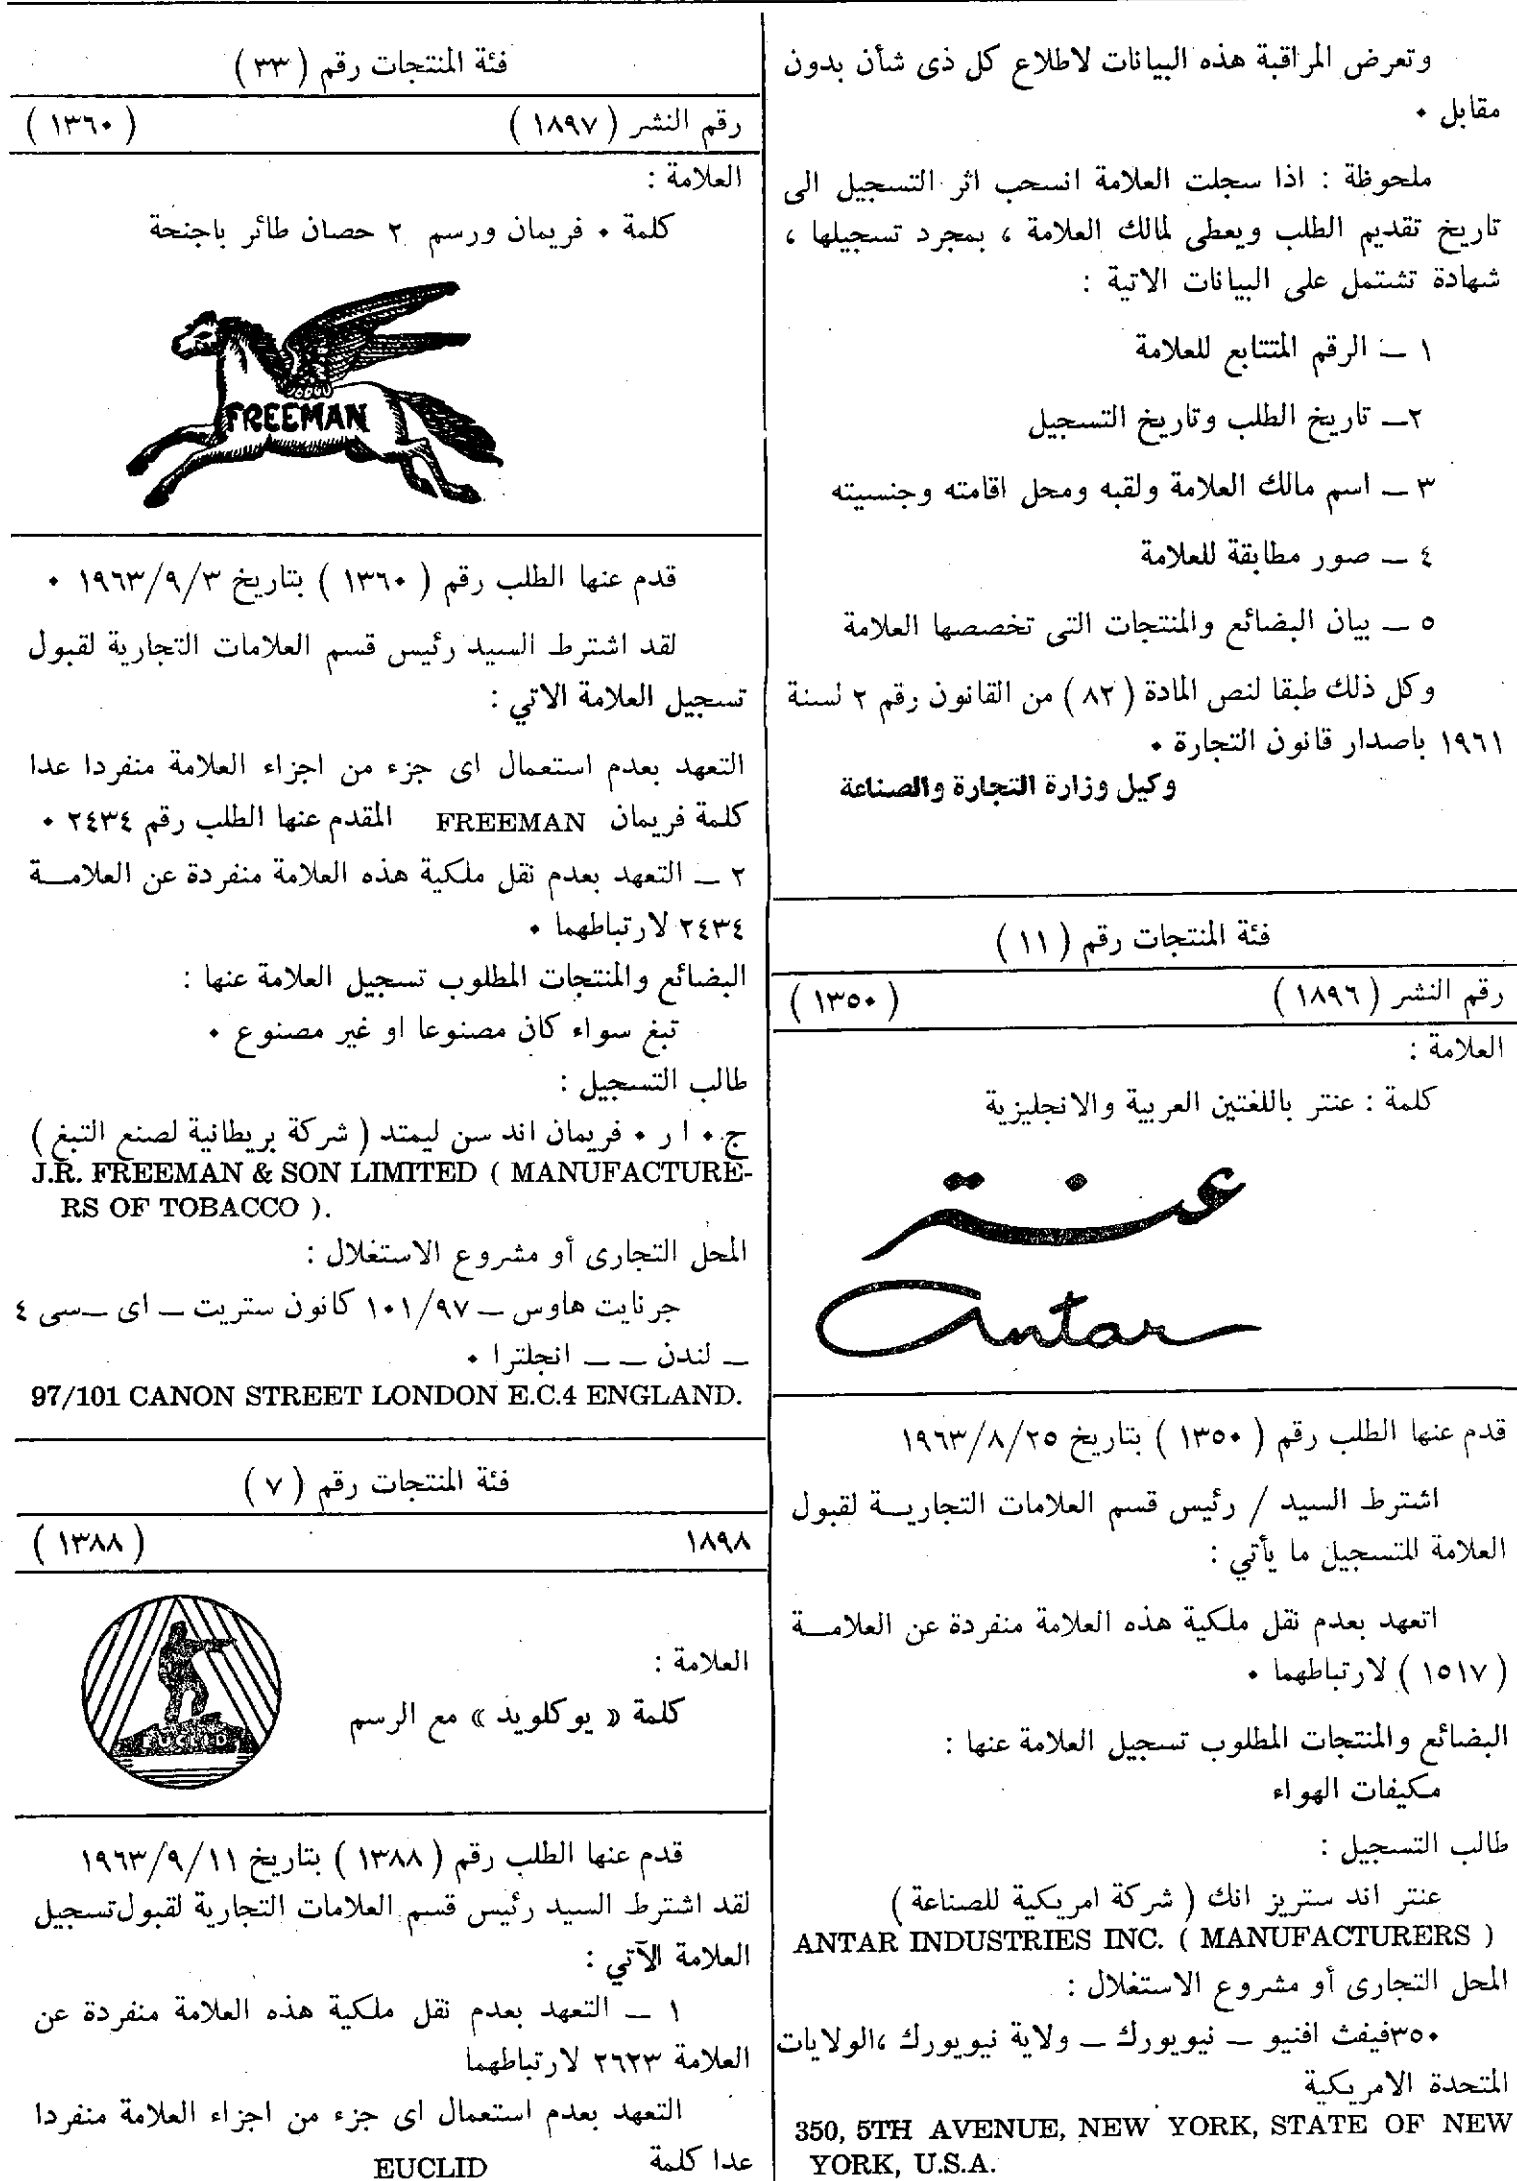 وتعرض المراقبة هذه البيانات لاطلاع كل ذى شأن بدون
مقابل ٠
ملحوظة : اذا سجلت العلامة انسحب اثر التسجيل الى
تاريخ تقديم الطلب ويعطى لمالك العلامة ، بمجرد تسجيلها ،
شهادة تشتمل على البيانات الاتية :
١ ــ الرقم المتتابع للعلامة
٢ــ تاريخ الطلب وتاريخ التسجيل
٣ ــ اسم مالك العلامة ولقبه ومحل اقامته وجنسيته
٤ ــ صور مطابقة للعلامة
٥ ــ بيان البضائع والمنتجات التى تخصصها العلامة
وكل ذلك طبقا لنص المادة ( ٨٢ ) من القانون رقم ٢ لسنة
١٩٦١ باصدار قانون التجارة ٠
وكيل وزارة التجارة والصناعة
فئة المنتجات رقم ( ١١ )
رقم النشر ( ١٨٩٦ ) ( ١٣٥٠ )
العلامة :
كلمة : عنتر باللغتين العربية والانجليزية
عنتر
Antar
قدم عنها الطلب رقم ( ١٣٥٠ ) بتاريخ ١٩٦٣/٨/٢٥
اشترط السيد / رئيس قسم العلامات التجاريــة لقبول
العلامة للتسجيل ما يأتي :
اتعهد بعدم نقل ملكية هذه العلامة منفردة عن العلامــة
( ١٥١٧ ) لارتباطهما ٠
البضائع والمنتجات المطلوب تسجيل العلامة عنها :
مكيفات الهواء
طالب التسجيل :
عنتر اند ستريز انك ( شركة امريكية للصناعة )
ANTAR INDUSTRIES INC. ( MANUFACTURERS )
المحل التجارى أو مشروع الاستغلال :
٣٥٠فيفث افنيو ــ نيويورك ــ ولاية نيويورك ،الولايات
المتحدة الامريكية
350, 5TH AVENUE, NEW YORK, STATE OF NEW
YORK, U.S.A.
فئة المنتجات رقم ( ٣٣ )
رقم النشر ( ١٨٩٧ ) ( ١٣٦٠ )
العلامة :
كلمة ٠ فريمان ورسم ٢ حصان طائر باجنحة
FREEMAN
قدم عنها الطلب رقم ( ١٣٦٠ ) بتاريخ ١٩٦٣/٩/٣ ٠
لقد اشترط السيد رئيس قسم العلامات التجارية لقبول
تسجيل العلامة الاتي :
التعهد بعدم استعمال اى جزء من اجزاء العلامة منفردا عدا
كلمة فريمان FREEMAN المقدم عنها الطلب رقم ٢٤٣٤ ٠
٢ ــ التعهد بعدم نقل ملكية هذه العلامة منفردة عن العلامــة
٢٤٣٤ لارتباطهما ٠
البضائع والمنتجات المطلوب تسجيل العلامة عنها :
تبغ سواء كان مصنوعا او غير مصنوع ٠
طالب التسجيل :
ج٠ ا ر ٠ فريمان اند سن ليمتد ( شركة بريطانية لصنع التبغ )
J.R. FREEMAN & SON LIMITED ( MANUFACTURE-
RS OF TOBACCO ).
المحل التجارى أو مشروع الاستغلال :
جرنايت هاوس ــ ١٠١/٩٧ كانون ستريت ــ اى ــسى ٤
ــ لندن ــ ــ انجلترا ٠
97/101 CANON STREET LONDON E.C.4 ENGLAND.
فئة المنتجات رقم ( ٧ )
١٨٩٨ ( ١٣٨٨ )
العلامة :
كلمة « يوكلويد » مع الرسم
EUCLID
قدم عنها الطلب رقم ( ١٣٨٨ ) بتاريخ ١٩٦٣/٩/١١
لقد اشترط السيد رئيس قسم العلامات التجارية لقبول تسجيل
العلامة الآتي :
١ ــ التعهد بعدم نقل ملكية هذه العلامة منفردة عن
العلامة ٢٦٢٣ لارتباطهما
التعهد بعدم استعمال اى جزء من اجزاء العلامة منفردا
عدا كلمة EUCLID